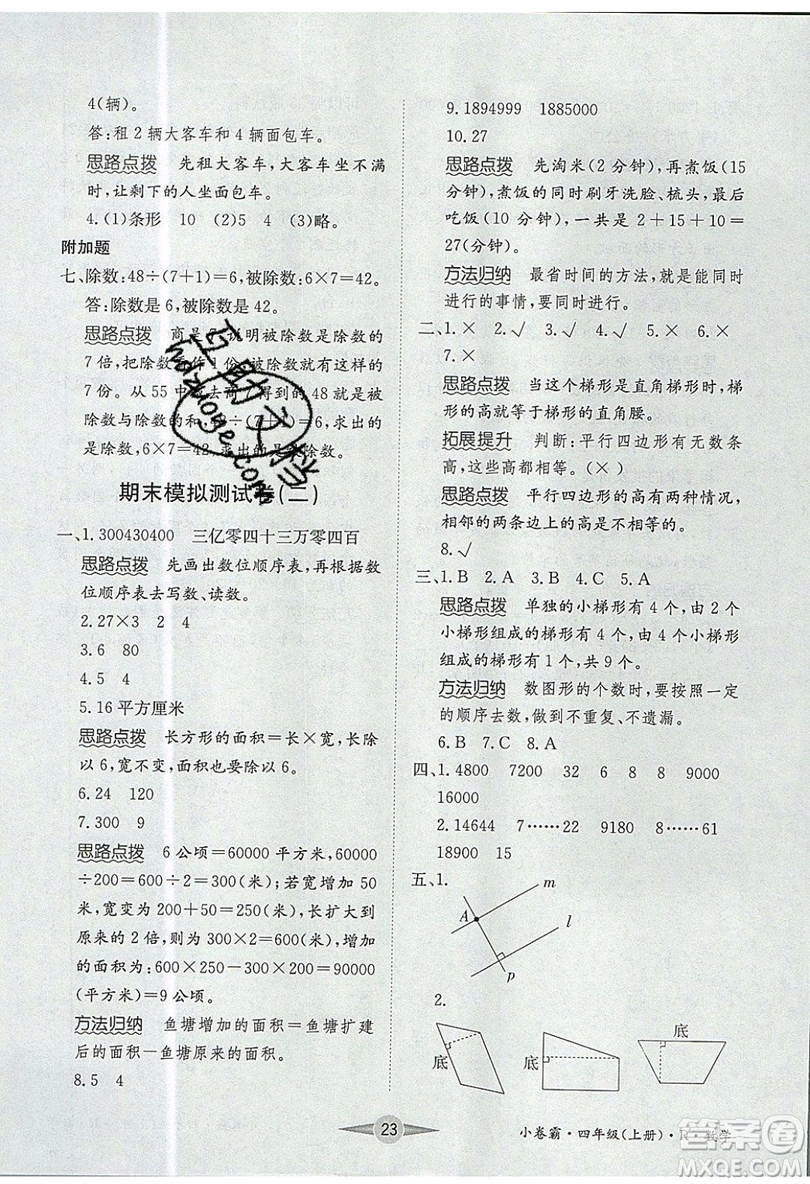 4(辆)。
答:租 2 辆大客车和 4 辆面包车。
思路点拨 先租大客车,大客车坐不满
时,让剩下的人坐面包车。
4.(1)条形 10 (2)5 4 (3)略。
附加题
七、除数:48÷(7+1)=6,被除数:6×7=42。
答:除数是 6,被除数是 42。
思路点拨 商是 说明被除数是除数的
7 倍,把除数看作 1 份, 就有这样的
7 份。从 55 中 去商 得到的 48 就是被
除数与除数的和,48÷(7+1)=6,求出的
是除数,6×7=42,求出的是 除数。
期末模拟测试卷(二)
一、1.300430400 三亿零四十三万零四百
思路点拨 先画出数位顺序表,再根据数
位顺序表去写数、读数。
2.27×3 2 4
3.6 80
4.5 4
5.16 平方厘米
思路点拨 长方形的面积=长×宽,长除
以 6,宽不变,面积也要除以 6。
6.24 120
7.300 9
思路点拨 6 公顷=60000 平方米,60000
÷200=600÷2=300(米);若宽增加 50
米,宽变为 200+50=250(米),长扩大到
原来的 2 倍,则为 300×2=600(米),增加
的面积为:600×250-300×200=90000
(平方米)=9 公顷。
方法归纳 鱼塘增加的面积=鱼塘扩建
后的面积-鱼塘原来的面积。
8.5 4
9.1894999 1885000
10.27
思路点拨 先淘米(2 分钟),再煮饭(15
分钟),煮饭的同时刷牙洗脸、梳头,最后
吃饭(10 分钟),一共是 2+15+10=
27(分钟)。
方法归纳 最省时间的方法,就是能同时
进行的事情,要同时进行。
二、1.× 2.√ 3.√ 4.√ 5.× 6.×
7.×
思路点拨 当这个梯形是直角梯形时,梯
形的高就等于梯形的直角腰。
拓展提升 判断:平行四边形有无数条
高,且都相等。(×)
思路点拨 平行四边形的高有两种情况,
相邻的两条边上的高是不相等的。
8.√
三、1.B 2.A 3.B 4.C 5.A
思路点拨 单独的小梯形有 4 个,由 2 个
小梯形组成的梯形有 4 个,由 4 个小梯形
组成的梯形有 1 个,共 9 个。
方法归纳 数图形的个数时,要按照一定
的顺序去数,做到不重复、不遗漏。
6.B 7.C 8.A
四、1.4800 7200 32 6 8 8 9000
16000
2.14644 7……7 9180 8……61
18900 15
五、1.
m
A
l
p
2.
底
底
底
23
小卷霸·四年级(上册)·RJ 数学
答案圈
MXQE.COM